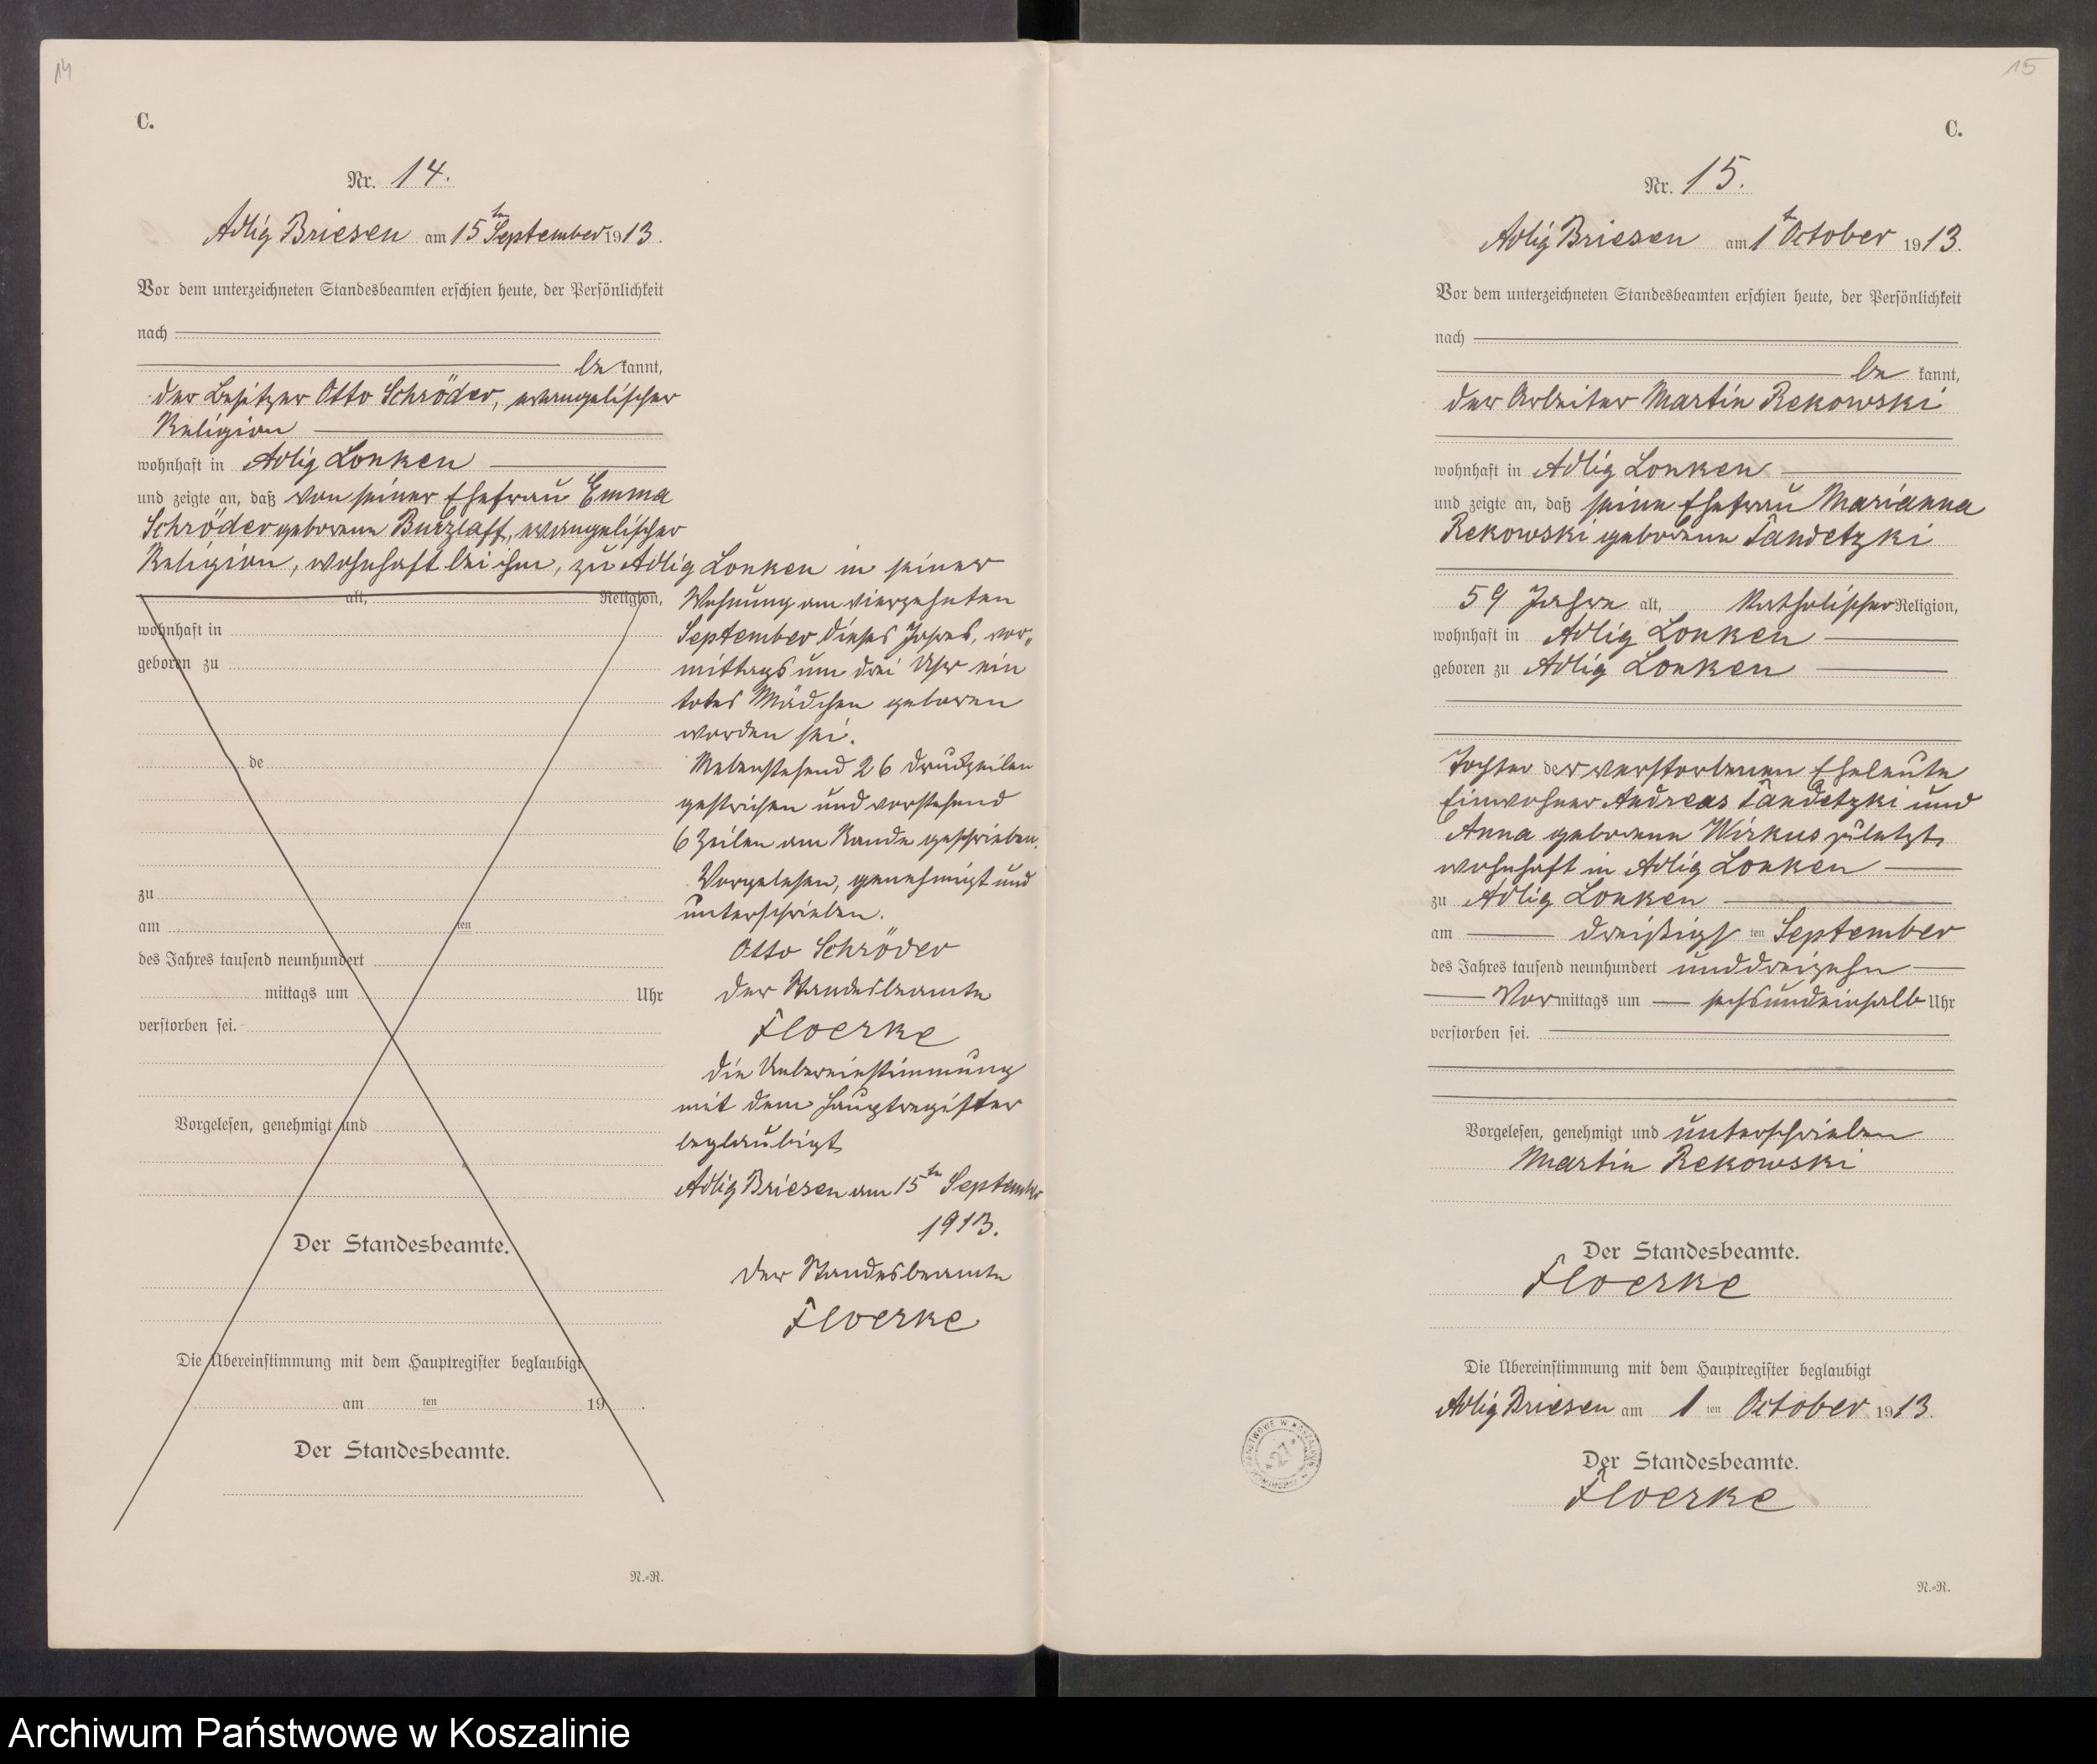 14
C.
Nr. 14.
Adlig Briesen am 15ten September 1913.
Vor dem unterzeichneten Standesbeamten erschien heute, der Persönlichkeit
nach
be kannt,
der Besitzer Otto Schröder, evangelischer
Religion
wohnhaft in Adlig Lonken
und zeigte an, daß von seiner Ehefrau Emma
Schröder geborene Butzlaff, evangelischer
Religion, wohnhaft bei ihm, zu Adlig Lonken in seiner
alt, Religion,
wohnhaft in
geboren zu
de
zu
am ten
des Jahres tausend neunhundert
mittags um Uhr
verstorben sei.
Vorgelesen, genehmigt und
Der Standesbeamte.
Die Übereinstimmung mit dem Hauptregister beglaubigt
am ten 19 .
Der Standesbeamte.
N.-R.
Wohnung am vierzehnten
September dieses Jahres, vor„
mittags um drei Uhr ein
totes Mädchen geboren
worden sei.
Nebenstehend 26 Druckzeilen
gestrichen und vorstehend
6 Zeilen am Rande geschrieben.
Vorgelesen, genehmigt und
unterschrieben.
Otto Schröder
Der Standesbeamte
Floerke
Die Uebereinstimmung
mit dem Hauptregister
beglaubigt
Adlig Briesen am 15ten September
1913.
Der Standesbeamte
Floerke
15
C.
Nr. 15.
Adlig Briesen am 1t October 1913.
Vor dem unterzeichneten Standesbeamten erschien heute, der Persönlichkeit
nach
be kannt,
der Arbeiter Martin Rekowski
wohnhaft in Adlig Lonken
und zeigte an, daß seine Ehefrau Marianna
Rekowski geborene Tandetzki
59 Jahre alt, katholischer Religion,
wohnhaft in Adlig Lonken
geboren zu Adlig Lonken
Tochter der verstorbenen Eheleute
Einwohner Andreas Tandetzki und
Anna geborene Wirkus zuletzt
wohnhaft in Adlig Lonken
zu Adlig Lonken
am dreißigs ten September
des Jahres tausend neunhundert und dreizehn
Vor mittags um sechs und einhalb Uhr
verstorben sei.
Vorgelesen, genehmigt und unterschrieben
Martin Rekowski
Der Standesbeamte.
Floerke
Die Übereinstimmung mit dem Hauptregister beglaubigt
Adlig Briesen am 1 ten October 1913.
Der Standesbeamte.
Floerke
N.-R.
*27*
Archiwum Państwowe w Koszalinie